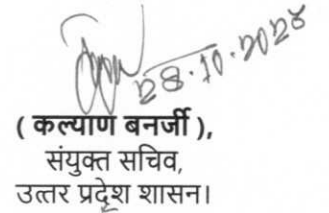 28.10.2025
( कल्याण बनर्जी ),
संयुक्त सचिव,
उत्तर प्रदेश शासन।